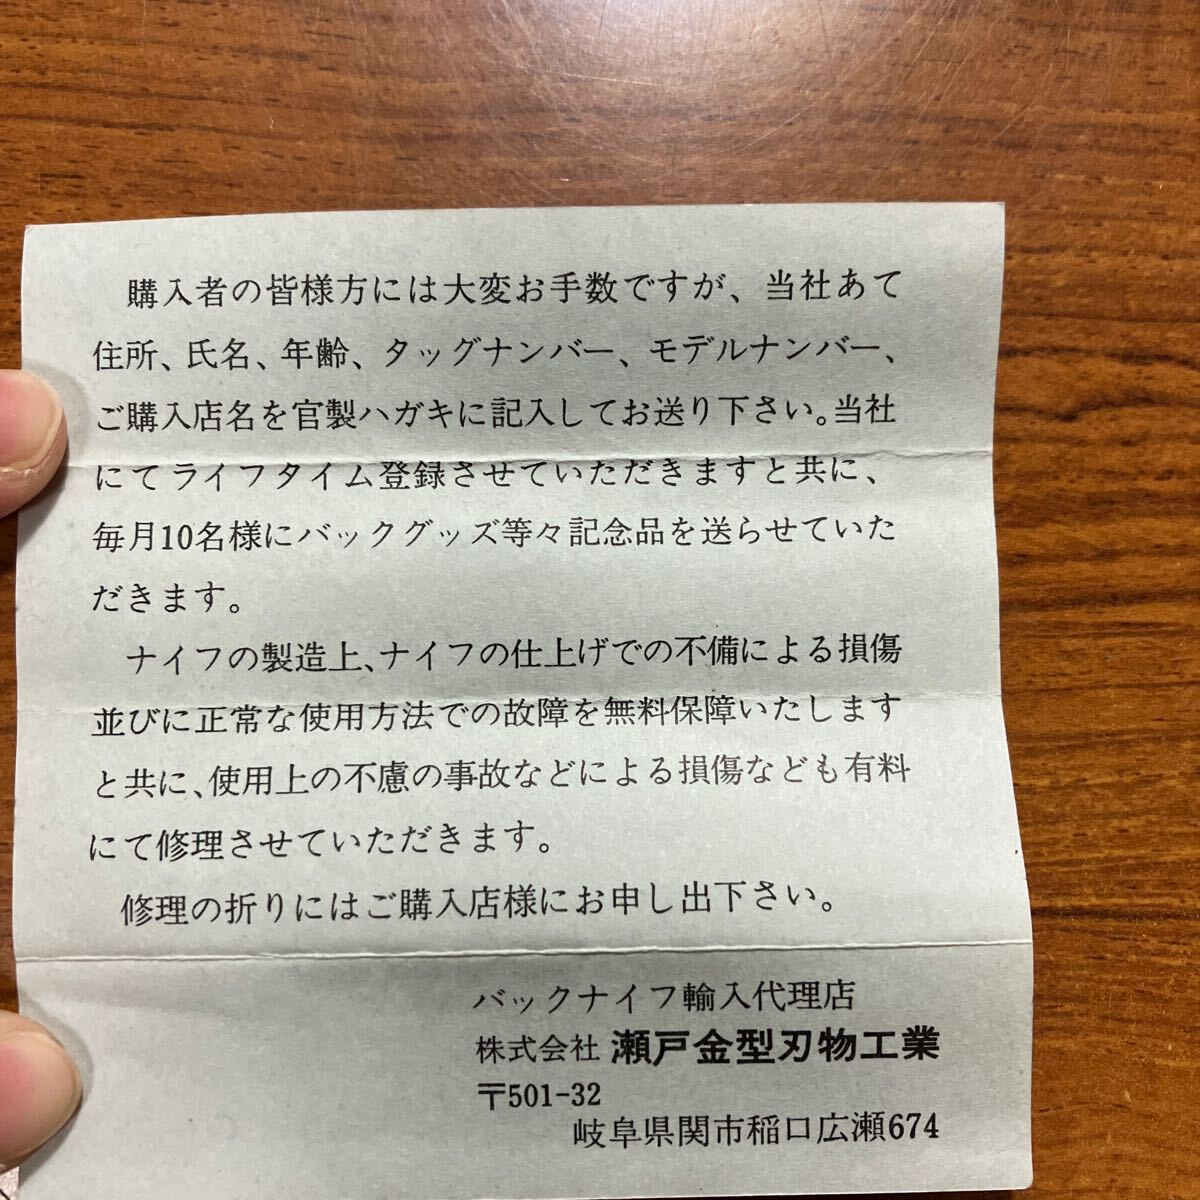 購入者の皆様方には大変お手数ですが、当社あて
住所、氏名、年齢、タッグナンバー、モデルナンバー、
ご購入店名を官製ハガキに記入してお送り下さい。当社
にてライフタイム登録させていただきますと共に、
毎月10名様にバックグッズ等々記念品を送らせていた
だきます。
ナイフの製造上、ナイフの仕上げでの不備による損傷
並びに正常な使用方法での故障を無料保障いたします
と共に、使用上の不慮の事故などによる損傷なども有料
にて修理させていただきます。
修理の折りにはご購入店様にお申し出下さい。
バックナイフ輸入代理店
株式会社 瀬戸金型刃物工業
〒501-32
岐阜県関市稲口広瀬674